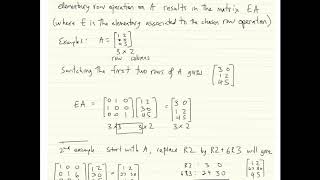 elementary row operation on A results in the matrix EA
(where E is the elementary associated to the chosen row operation)
Example: A = [1 2
3 0
4 5]
3 × 2
row columns
Switching the first two rows of A gives [3 0
1 2
4 5]
EA = [0 1 0
1 0 0
0 0 1] [1 2
3 0
4 5] = [3 0
1 2
4 5]
3 × 3 3 × 2 3 × 2
2nd example start with A, replace R2 by R2 + 6R3 will give
[1 0 0
0 1 6] [1 2
3 0] = [1 2
27 30] R2 : 3 0
6R3 : 24 30